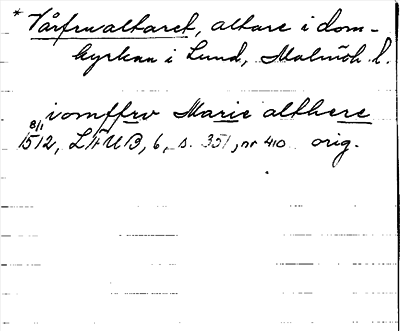 * Vårfrualtaret, altare i dom-
kyrkan i Lund, Malmöh. l.
i vomffrv Marie althere
8/1
1512, LÄUB, 6, s. 351, nr 410 orig.